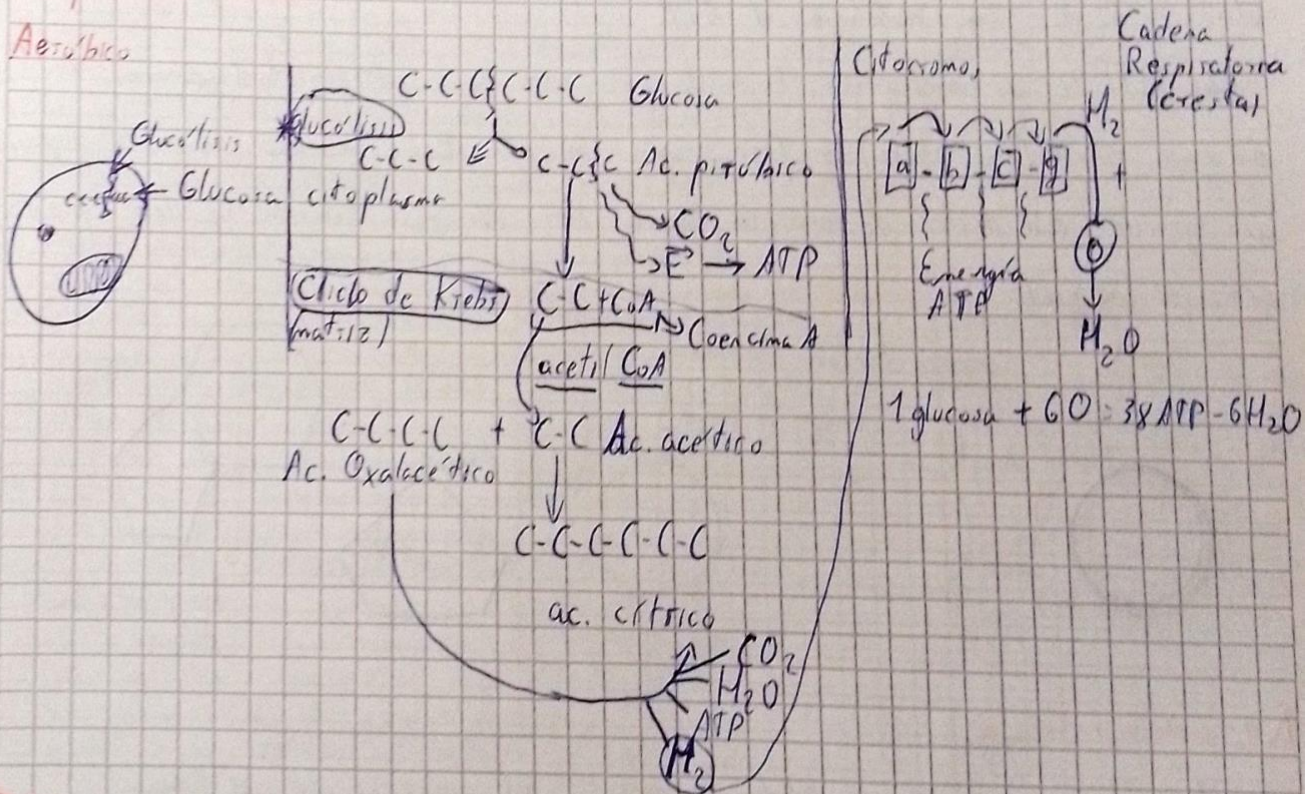 Aeróbico
Glucólisis
Glucosa
C-C-C C-C-C Glucosa
Glucólisis
C-C-C
C-C C Ac. pirúbico
citoplasma
CO2
E → ATP
Ciclo de Krebs
(matriz)
C-C+CoA
Coencima A
acetil CoA
C-C-C-C + C-C Ac. acético
Ac. Oxalacético
C-C-C-C-C-C
ac. cítrico
CO2
H2O
ATP
H2
Citocromo,
Cadena
Respiratoria
(cresta)
H2
a - b - c - g
+
O
Energía
ATP
H2O
1 glucosa + 6O = 38 ATP - 6H2O